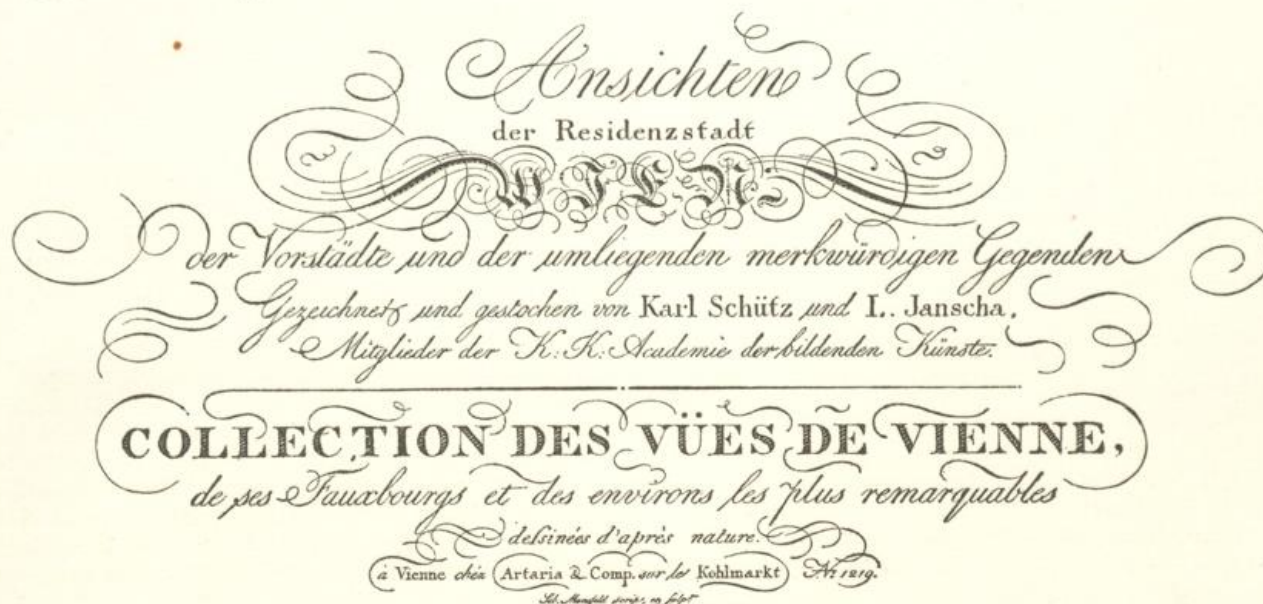 Ansichten
der Residenzstadt
WIEN
der Vorstädte und der umliegenden merkwürdigen Gegenden
Gezeichnet und gestochen von Karl Schütz und L. Janscha.
Mitglieder der K: K: Academie der bildenden Künste.
COLLECTION DES VÜES DE VIENNE,
de ses Fauxbourgs et des environs les plus remarquables
dessinées d'après nature.
à Vienne chéz Artaria & Comp. sur le Kohlmarkt Nr. 1219.
Mansfeld scrips. et sculpt